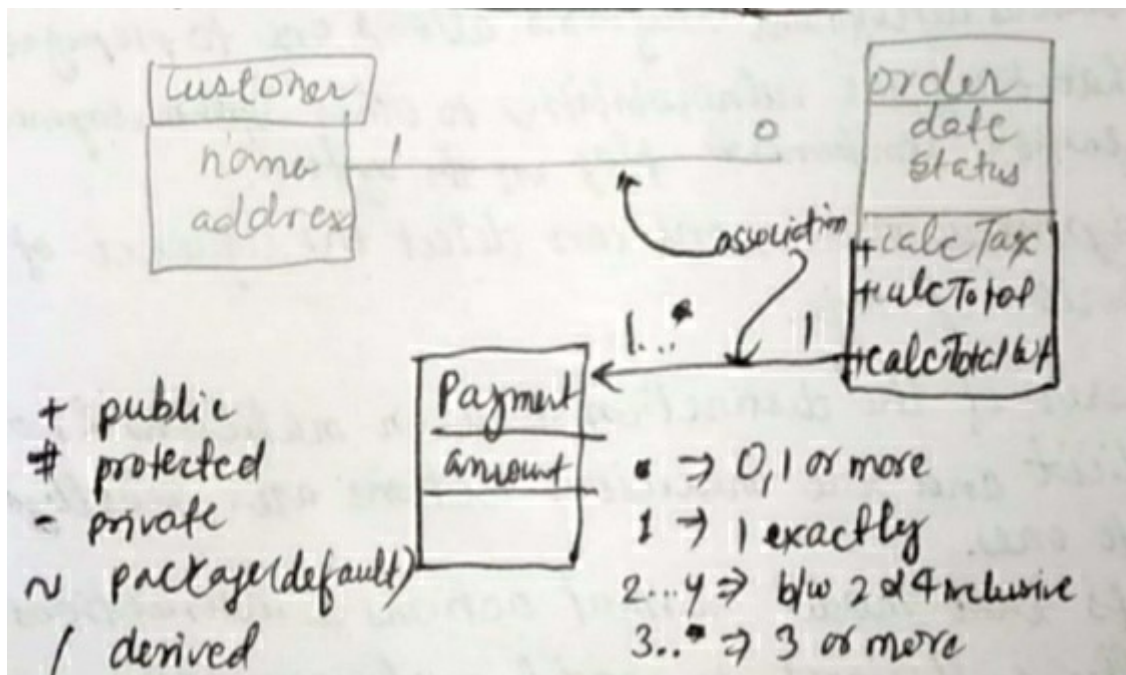 Customer
name
address
1
0
order
date
status
+calcTax
+calcTotal
association
1...*
1
Payment
amount
+ public
# protected
- private
~ package(default)
/ derived
* => 0,1 or more
1 => 1 exactly
2...4 => b/w 2 & 4 inclusive
3..* => 3 or more